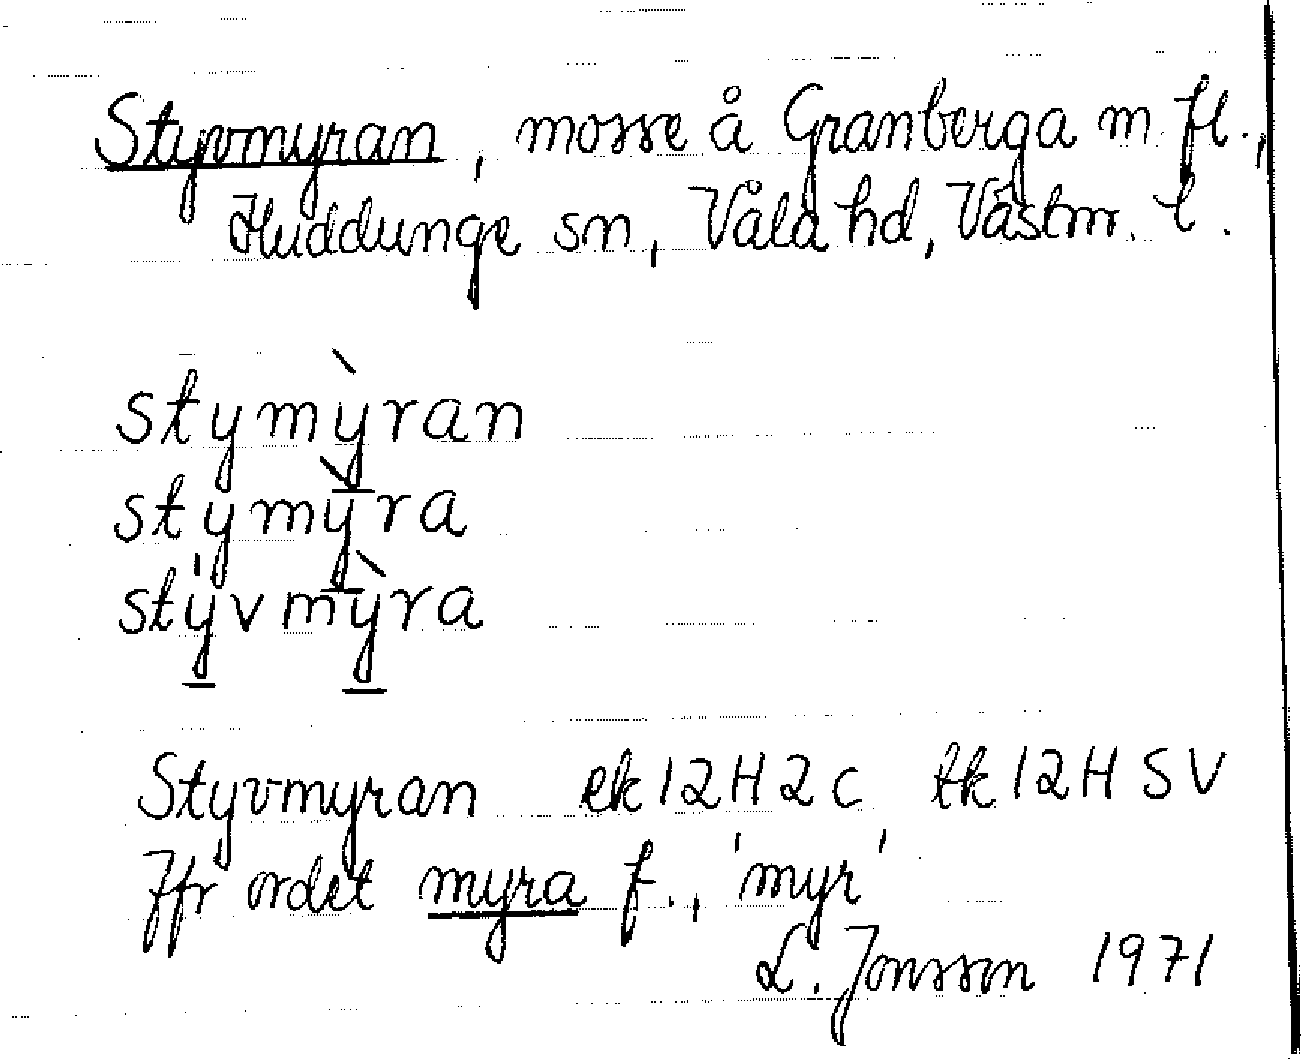 Styvmyran, mosse å Granberga m. fl.,
Huddunge sn, Våla hd, Västm. l.
stymỳran
stymỳra
stývmỳra
Styvmyran ek 12H2c tk 12H SV
Jfr ordet myra f., 'myr'
L. Jonsson 1971